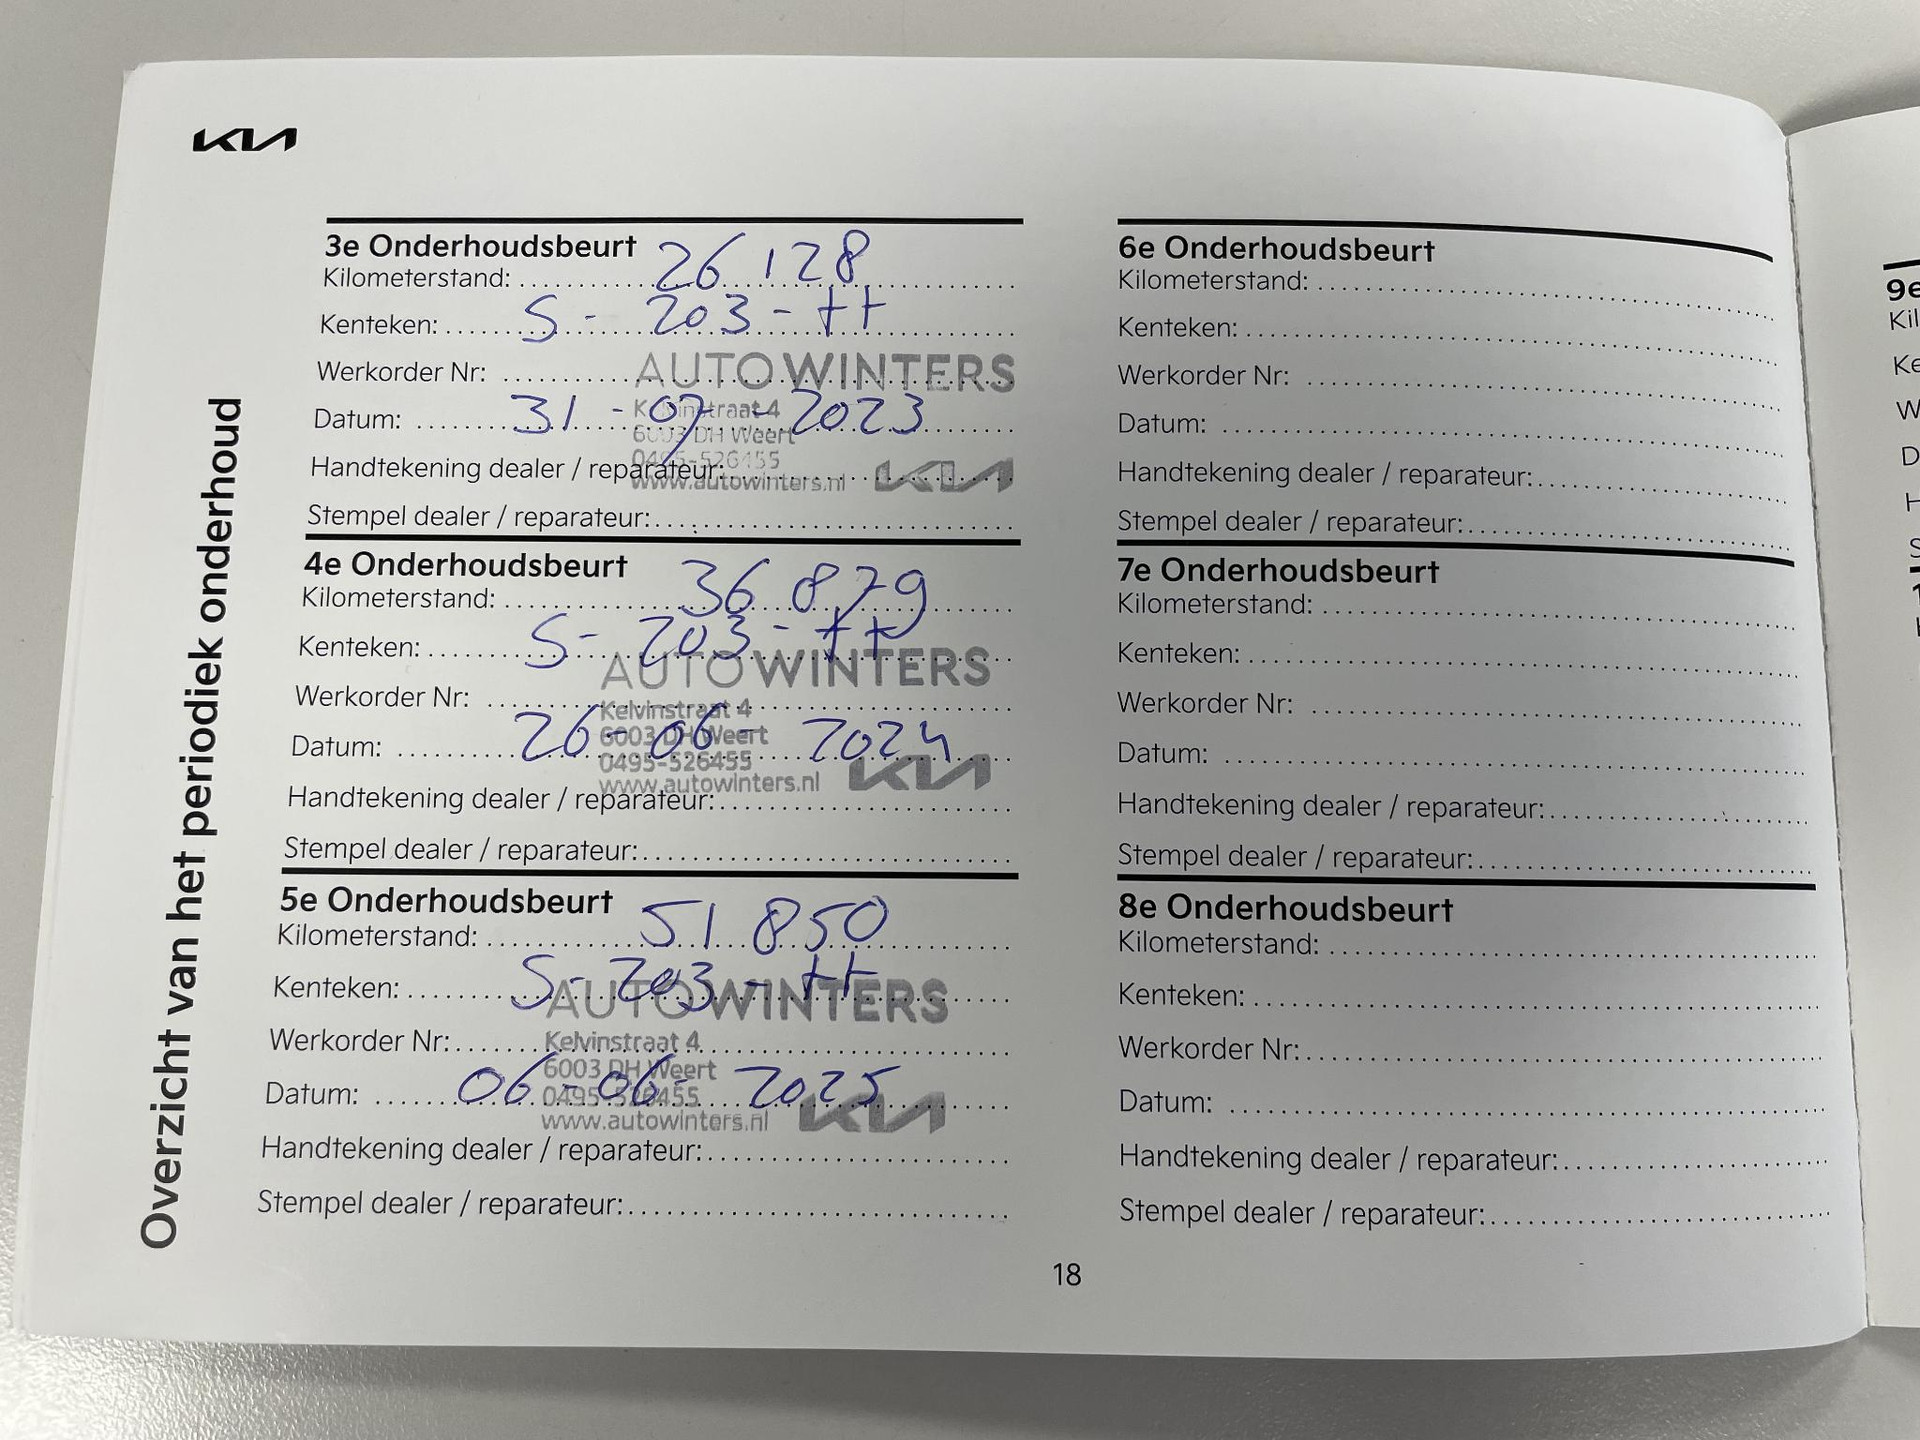 KIA
Overzicht van het periodiek onderhoud
3e Onderhoudsbeurt
Kilometerstand: 26 128
Kenteken: S - 203 - tt
Werkorder Nr:
Datum: 31 - 07 - 2023
Handtekening dealer / reparateur:
Stempel dealer / reparateur:
AUTO WINTERS
Kelvinstraat 4
6003 DH Weert
0495-526455
www.autowinters.nl
KIA
4e Onderhoudsbeurt
Kilometerstand: 36 879
Kenteken: S - 203 - tt
Werkorder Nr:
Datum: 26 - 06 - 2024
Handtekening dealer / reparateur:
Stempel dealer / reparateur:
AUTO WINTERS
Kelvinstraat 4
6003 DH Weert
0495-526455
www.autowinters.nl
KIA
5e Onderhoudsbeurt
Kilometerstand: 51 850
Kenteken: S - 203 - tt
Werkorder Nr:
Datum: 06 - 06 - 2025
Handtekening dealer / reparateur:
Stempel dealer / reparateur:
AUTO WINTERS
Kelvinstraat 4
6003 DH Weert
0495-526455
www.autowinters.nl
KIA
6e Onderhoudsbeurt
Kilometerstand:
Kenteken:
Werkorder Nr:
Datum:
Handtekening dealer / reparateur:
Stempel dealer / reparateur:
7e Onderhoudsbeurt
Kilometerstand:
Kenteken:
Werkorder Nr:
Datum:
Handtekening dealer / reparateur:
Stempel dealer / reparateur:
8e Onderhoudsbeurt
Kilometerstand:
Kenteken:
Werkorder Nr:
Datum:
Handtekening dealer / reparateur:
Stempel dealer / reparateur:
18
9e